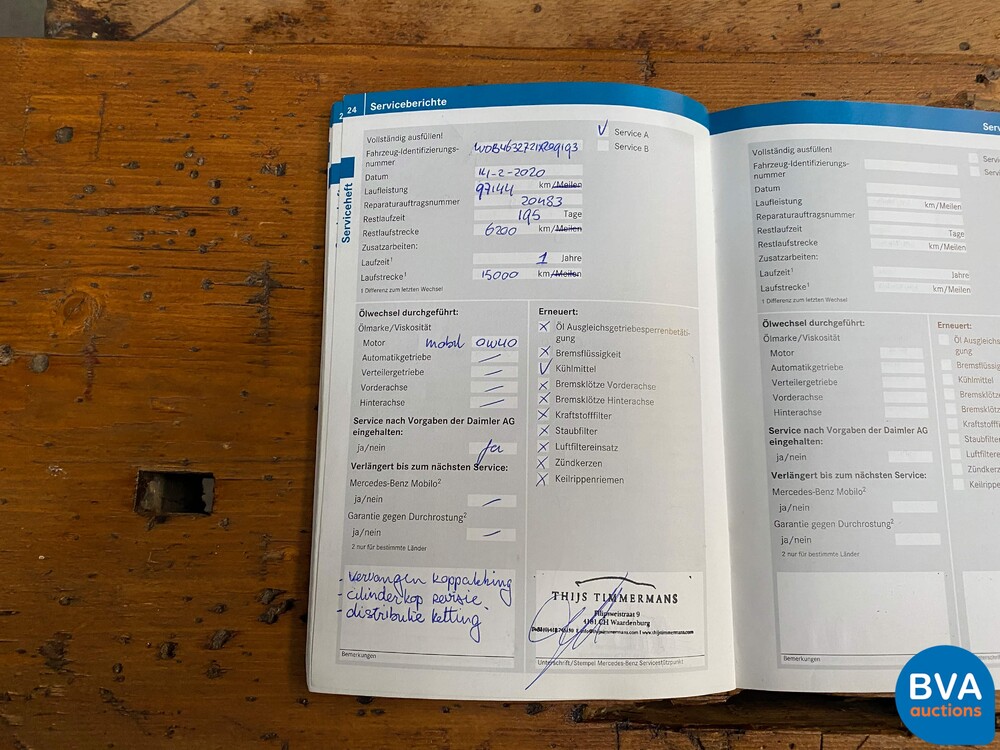 24 Serviceberichte
Serviceheft
Vollständig ausfüllen!
✓ Service A
Service B
Fahrzeug-Identifizierungs-
nummer
Datum 14-2-2020
Laufleistung 97144 km/Meilen
Reparaturauftragsnummer 20483
Restlaufzeit 195 Tage
Restlaufstrecke 6200 km/Meilen
Zusatzarbeiten:
Laufzeit¹ 1 Jahre
Laufstrecke¹ 15000 km/Meilen
1 Differenz zum letzten Wechsel
Ölwechsel durchgeführt:
Ölmarke/Viskosität
Motor mobil 0W40
Automatikgetriebe /
Verteilergetriebe /
Vorderachse /
Hinterachse /
Service nach Vorgaben der Daimler AG
eingehalten:
ja/nein ja
Verlängert bis zum nächsten Service:
Mercedes-Benz Mobilo²
ja/nein /
Garantie gegen Durchrostung²
ja/nein /
2 nur für bestimmte Länder
- vervangen koppakking
- cilinderkop revisie
- distributie ketting
Bemerkungen
Erneuert:
X Öl Ausgleichsgetriebesperrenbetäti-
gung
X Bremsflüssigkeit
✓ Kühlmittel
X Bremsklötze Vorderachse
X Bremsklötze Hinterachse
X Kraftstofffilter
X Staubfilter
X Luftfiltereinsatz
X Zündkerzen
X Keilrippenriemen
THIJS TIMMERMANS
4181 CH Waardenburg
Unterschrift/Stempel Mercedes-Benz Servicestützpunkt
Serv
Vollständig ausfüllen!
Fahrzeug-Identifizierungs-
nummer
Datum
Laufleistung km/Meilen
Reparaturauftragsnummer
Restlaufzeit Tage
Restlaufstrecke km/Meilen
Zusatzarbeiten:
Laufzeit¹ Jahre
Laufstrecke¹ km/Meilen
1 Differenz zum letzten Wechsel
Ölwechsel durchgeführt:
Ölmarke/Viskosität
Motor
Automatikgetriebe
Verteilergetriebe
Vorderachse
Hinterachse
Service nach Vorgaben der Daimler AG
eingehalten:
ja/nein
Verlängert bis zum nächsten Service:
Mercedes-Benz Mobilo²
ja/nein
Garantie gegen Durchrostung²
ja/nein
2 nur für bestimmte Länder
Bemerkungen
Servic
Servi
Erneuert:
Öl Ausgleichs
gung
Bremsflüssig
Kühlmittel
Bremsklötz
Bremsklötz
Kraftstoff
Staubfilte
Luftfiltere
Zündkerz
Keilrippe
BVA
auctions